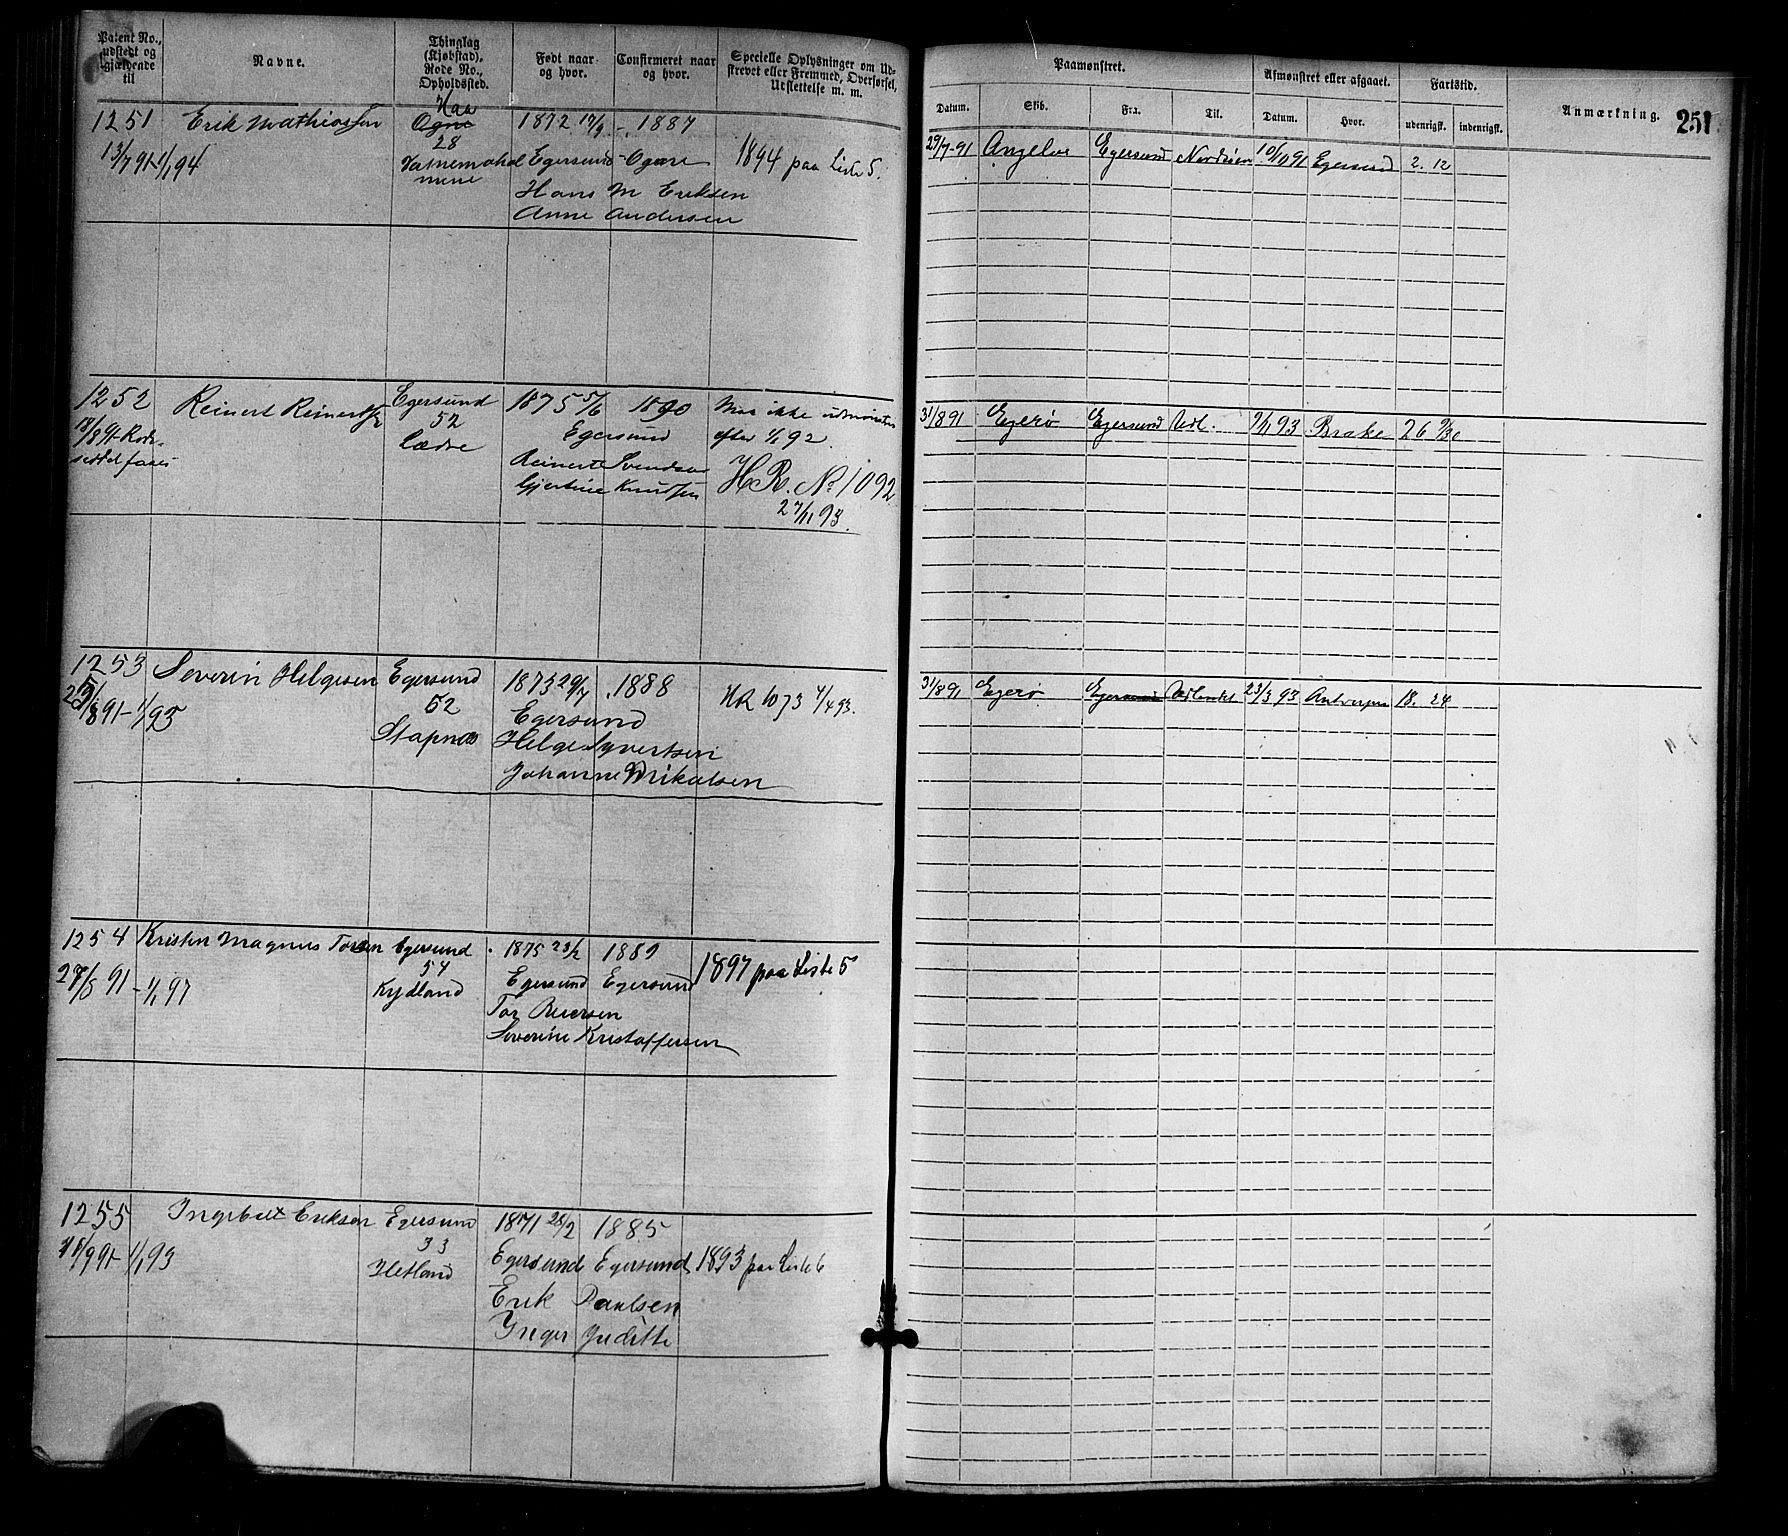 Patent No., udstedt og gjældende til
Navne.
Thinglag (Kjøbstad), Rode No., Opholdssted.
Født naar og hvor.
Confirmeret naar og hvor.
Specielle Oplysninger om Udstrevet eller Fremmed, Overførsel, Udslettelse m. m.
Paamønstret.
Afmønstret eller afgaaet.
Fartstid.
Anmærkning.
251
Datum.
Skib.
Fra.
Til.
Datum.
Hvor.
udenrigsk.
indenrigsk.
1251
Erik Mathiassen
Haa
Ogne
28
1872 17/9
1887
13/7 91-1/1 94
Egersund - Ogne
1894 paa Liste 5.
Hans M Eriksen
Anne Andersen
29/7-91 Angelos Egersund 10/10 91 Egersund 2. 12
1252
Reinert Reinertsen
Egersund
52
1875 5/6
1890
Maa ikke udmønstres
efter 1/1 92.
Egersund
Reinert Svendsen
Gjertine Knudsen
H R. No 1092
27/11 93.
31/8 91 Egerø Egersund Udl. 9/11 93 Brake 26 9/30
1253
Severin Helgesen
Egersund
52
Stapnes
1873 29/7
1888
25/8 91-1/1 95
Egersund
Helge Syvertsen
Johanne Mikalsen
HR 1073 4/4 93.
31/8 91 Egerø Egersund Udlandet 23/3 93 Antwerpen 18. 24
1254
Kristen Magnus Torsen
Egersund
54
Kydland
1875 23/2
1889
27/8 91-1/1 97
Egersund
Egersund
1897 paa Liste 5
Tor
Severine Kristoffersen
1255
Ingebret Eriksen
Egersund
33
Hetland
1871 28/2
1885
Egersund
Egersund
1893 paa Liste 6
Erik Paulsen
Inger Juditte